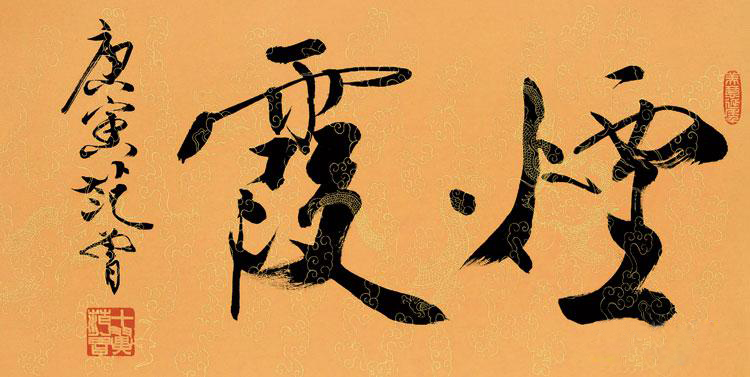 煙霞
庚寅范曾